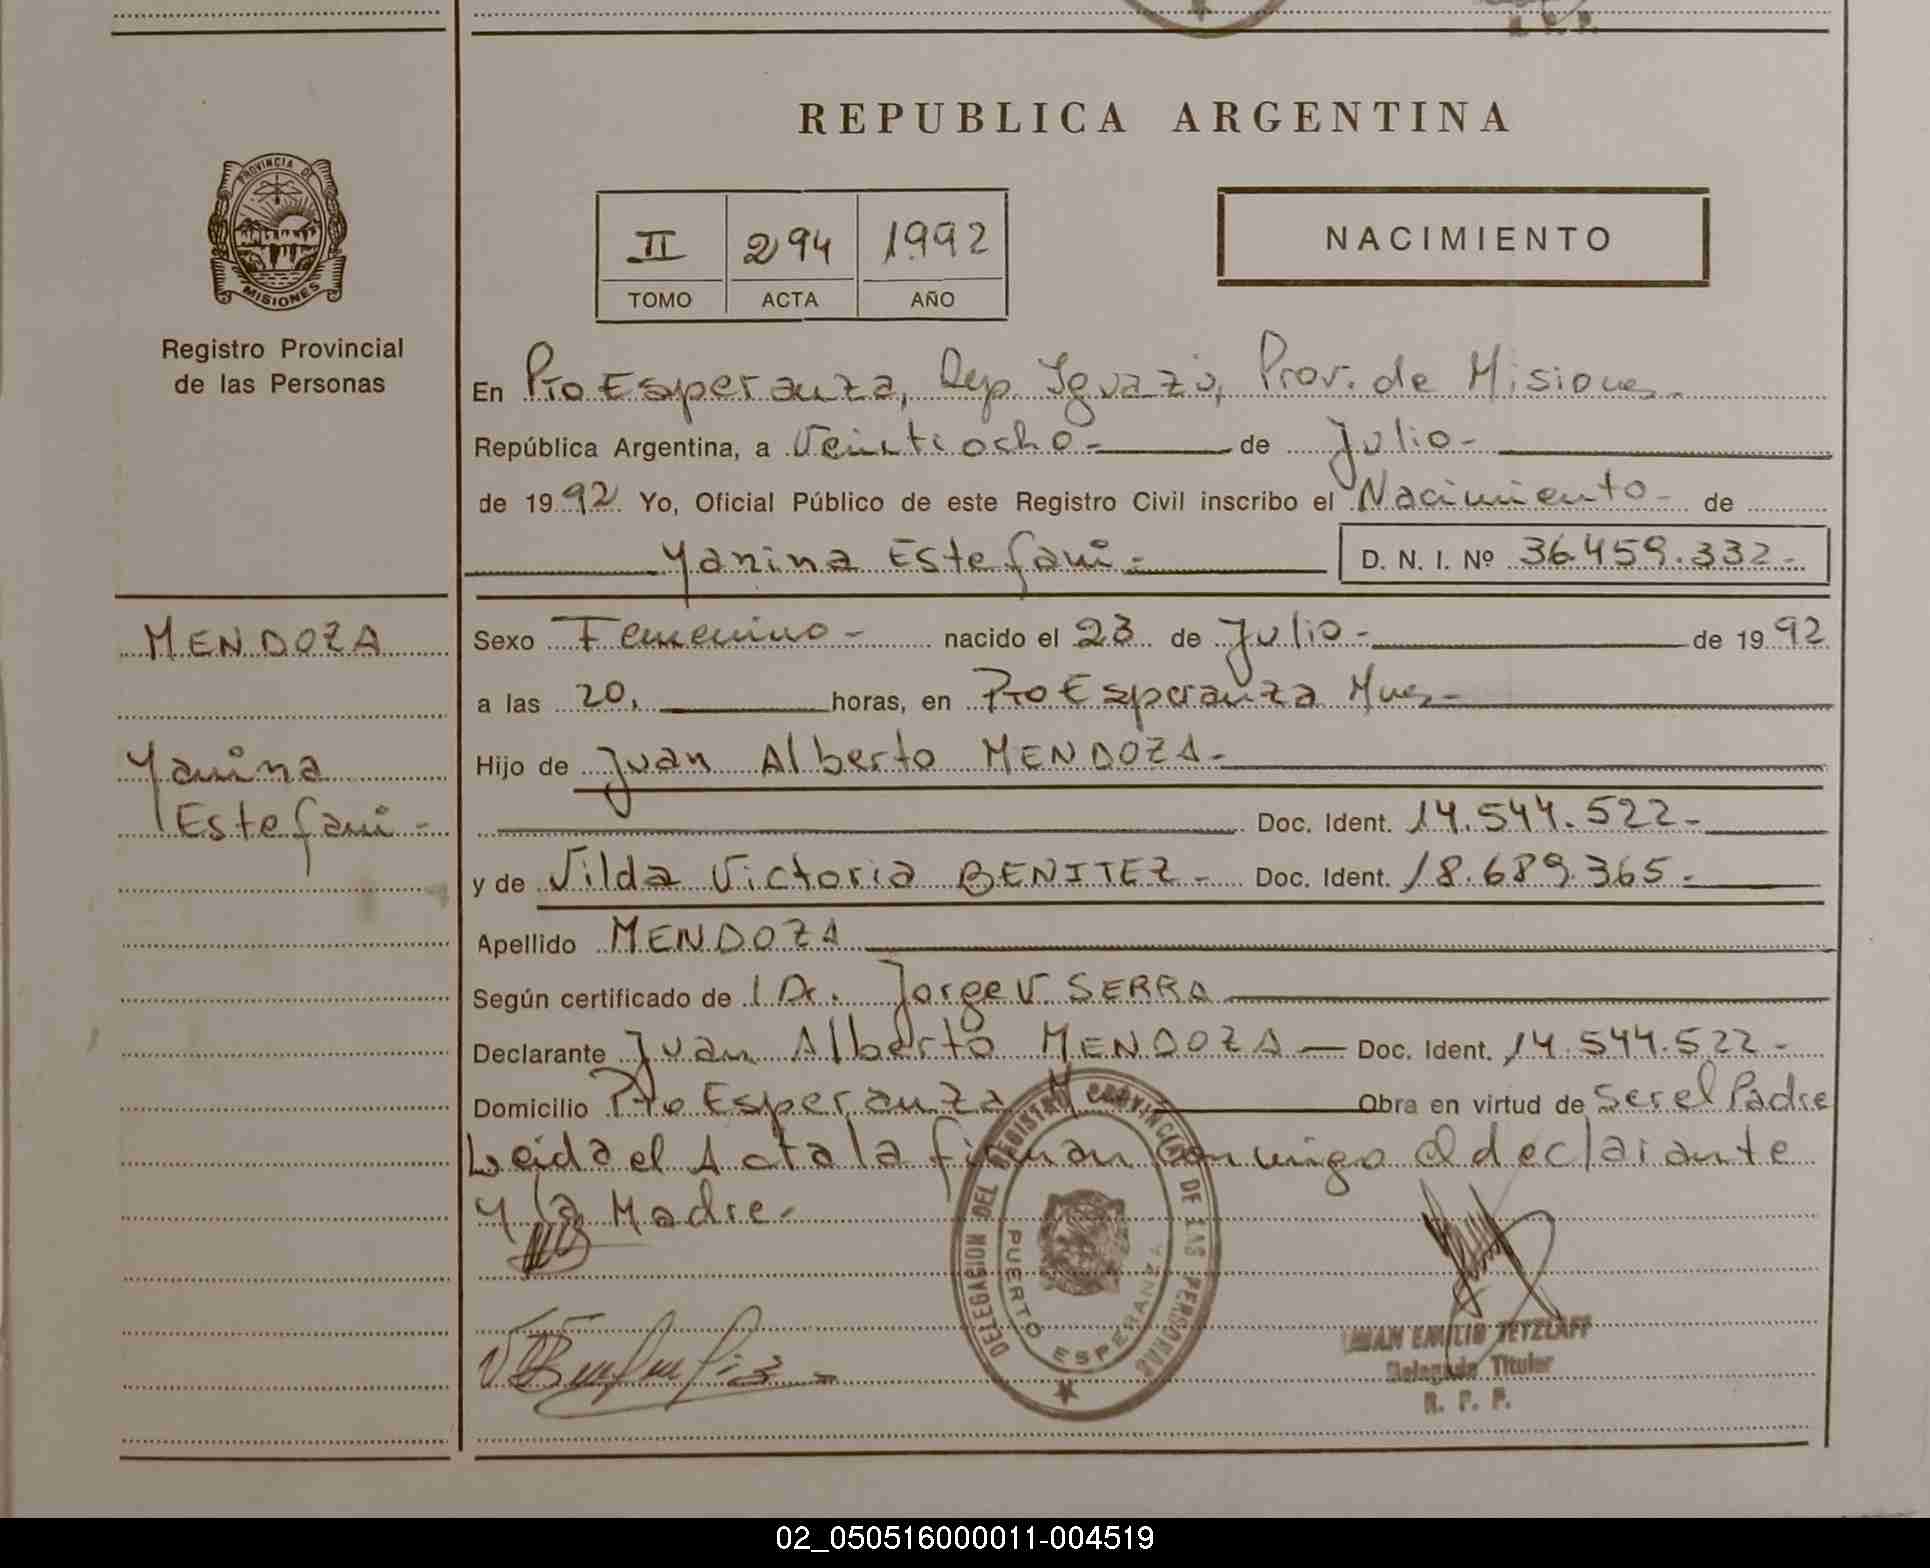 R. P. P.
REPUBLICA ARGENTINA
PROVINCIA DE
MISIONES
Registro Provincial
de las Personas
II 294 1992
TOMO ACTA AÑO
NACIMIENTO
En Pto Esperanza, Dep. Iguazú, Prov. de Misiones.
República Argentina, a Veintiocho- de Julio-
de 1992 Yo, Oficial Público de este Registro Civil inscribo el Nacimiento- de
Yanina Estefani- D. N. I. Nº 36.459.332-
MENDOZA
Yanina
Estefani-
Sexo Femenino- nacido el 23 de Julio- de 1992
a las 20, horas, en Pto Esperanza Mnes-
Hijo de Juan Alberto MENDOZA-
Doc. Ident. 14.544.522-
y de Vilda Victoria BENITEZ- Doc. Ident. 18.689.365-
Apellido MENDOZA
Según certificado de Dr. Jorge V. SERRA
Declarante Juan Alberto MENDOZA- Doc. Ident. 14.544.522-
Domicilio Pto Esperanza M Obra en virtud de Ser el Padre
Leida el Acta la firman conmigo el declarante
y la Madre-
DELEGACION DEL REGISTRO PROVINCIAL DE LAS PERSONAS
PUERTO ESPERANZA
JUAN EMILIO TETZLAFF
Delegado Titular
R. P. P.
02_050516000011-004519